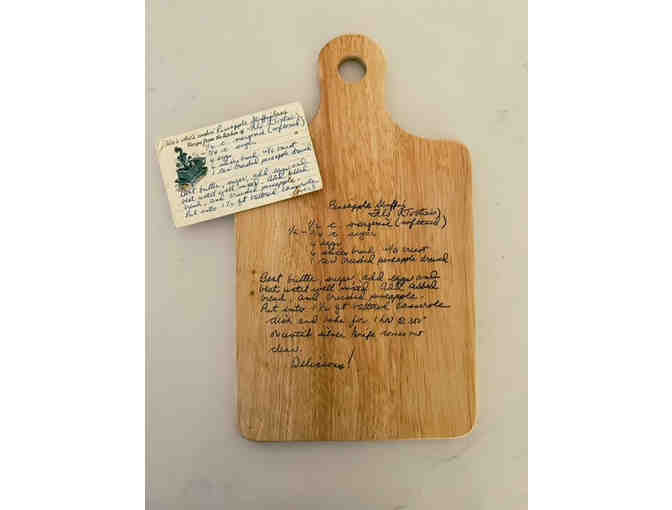 Pineapple
Recipe from the kitchen of
1/2 c. margarine (softened)
1/2 - 3/4 c sugar
4 eggs
bread, w/o crust
1 can crushed pineapple drained
Beat butter, sugar, add eggs and
beat until well mixed. Add cubed
bread, and crushed pineapple.
Put into 1 1/2 qt buttered casserole
Pineapple
1/2 c. margarine (softened)
1/2 - 3/4 c sugar
4 eggs
6 slices bread, w/o crust
1 can crushed pineapple drained
Beat butter, sugar, add eggs and
beat until well mixed. Add cubed
bread, and crushed pineapple.
Put into 1 1/2 qt buttered casserole
dish and bake for 1 hr @ 350°
or until silver knife comes out
clean.
Delicious!